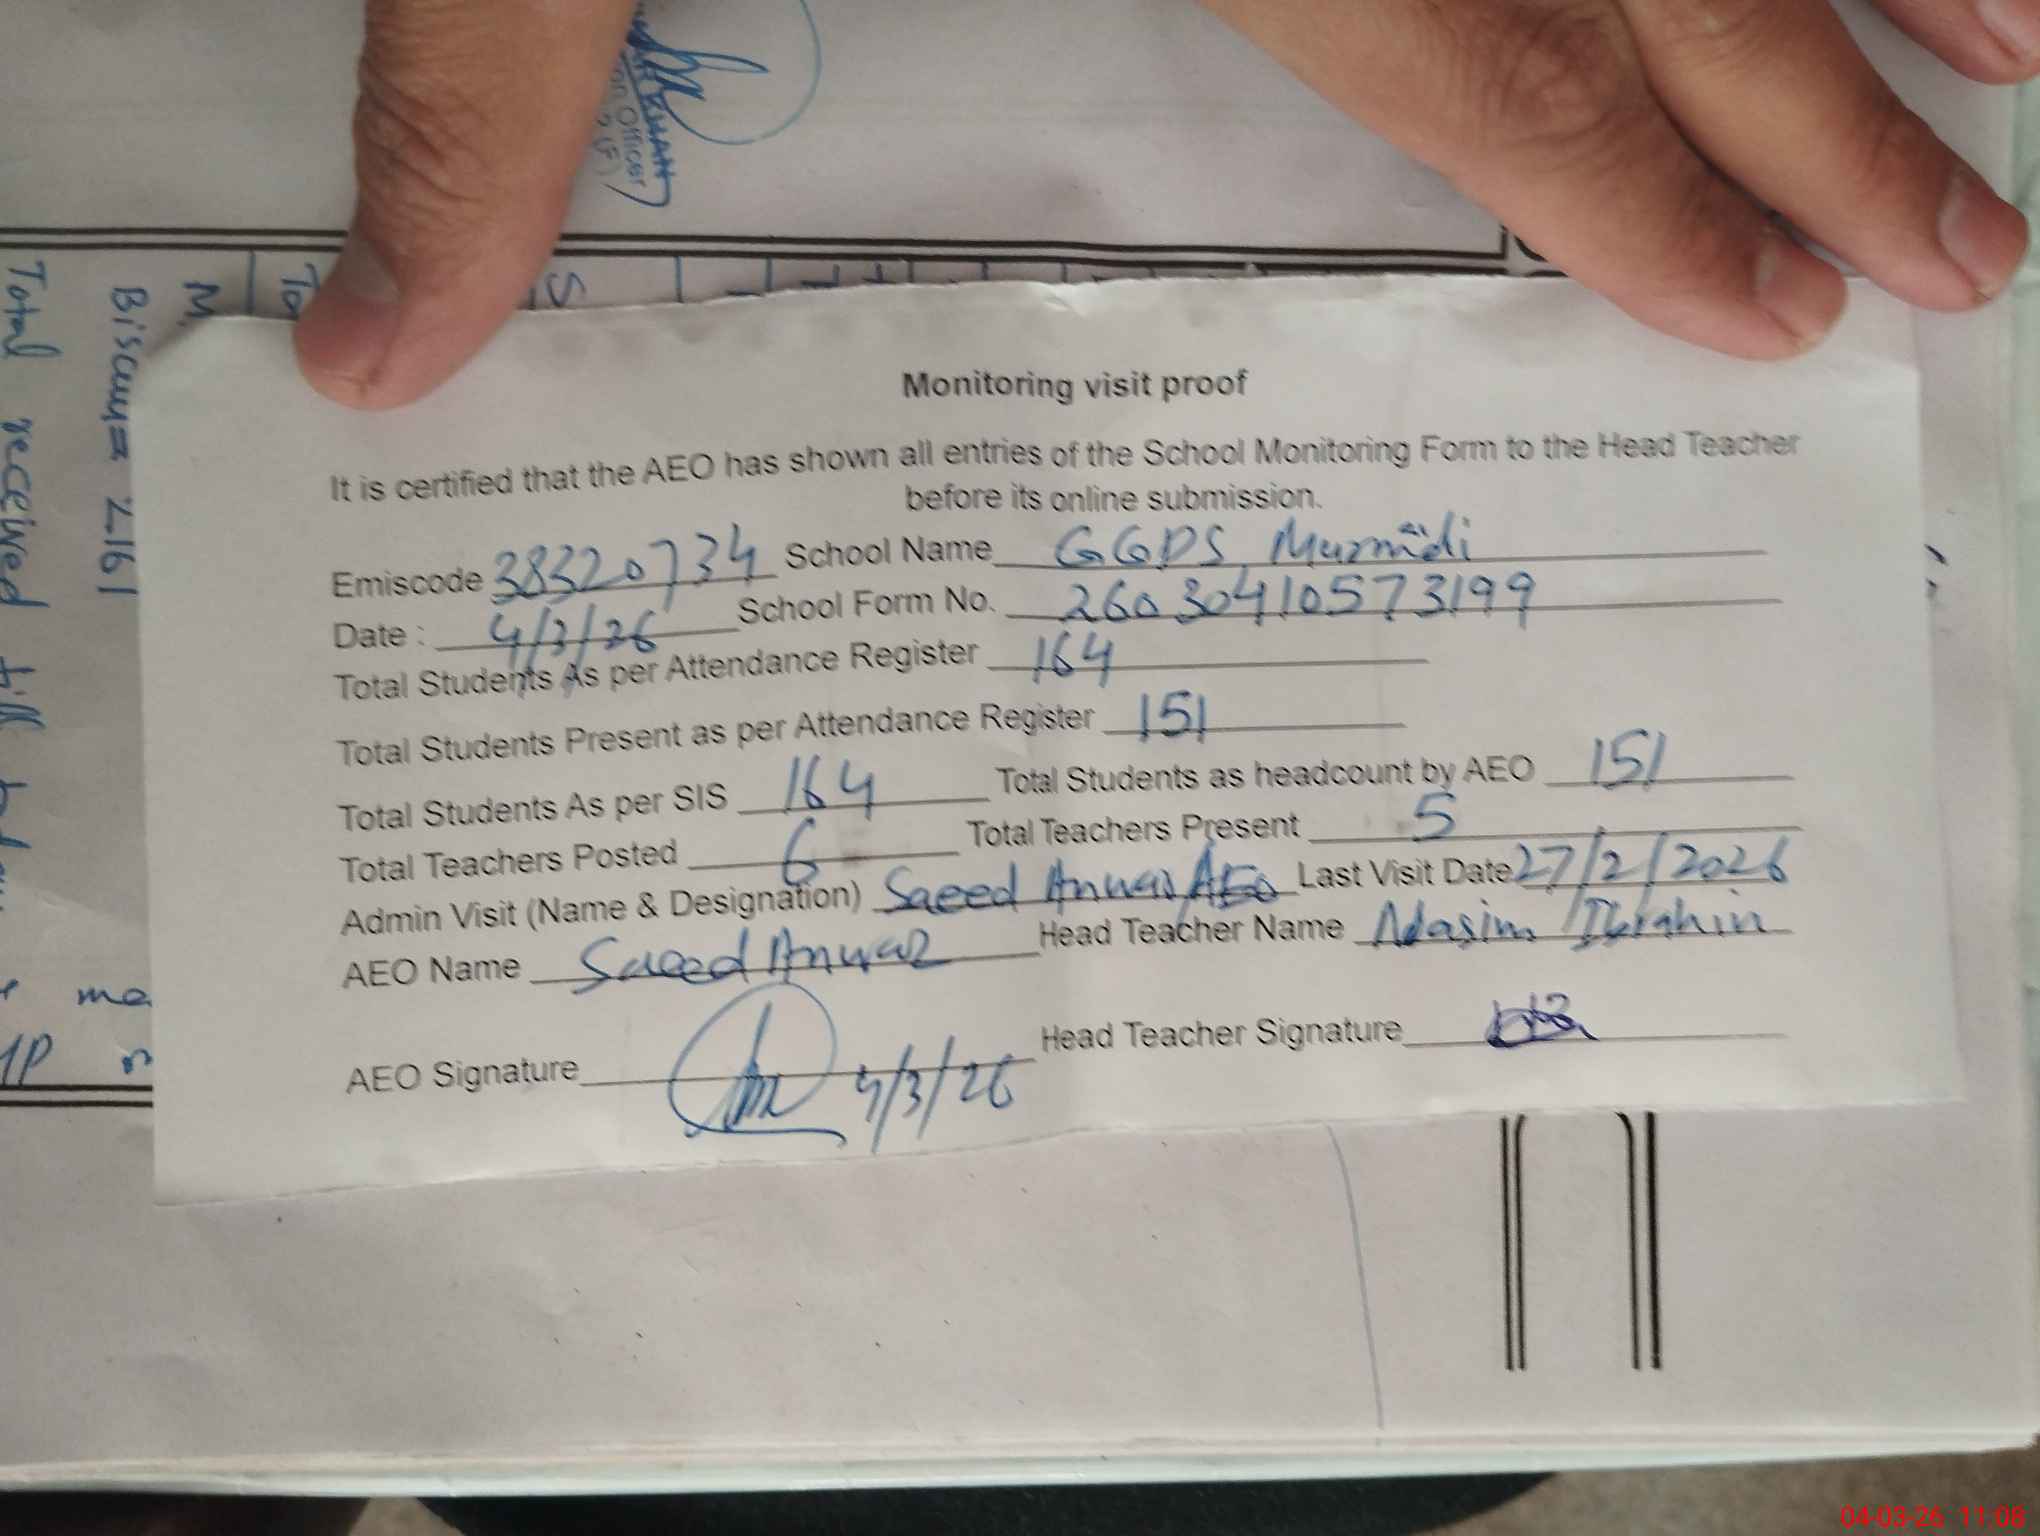 KHAN
on Officer
(F)
Total received till
Biscuit= 2161
M.
To
S
me
Monitoring visit proof
It is certified that the AEO has shown all entries of the School Monitoring Form to the Head Teacher
before its online submission.
Emiscode 38320734 School Name GGPS Murmadi
Date : 4/3/26 School Form No. 26030410573199
Total Students As per Attendance Register 164
Total Students Present as per Attendance Register 151
Total Students As per SIS 164 Total Students as headcount by AEO 151
Total Teachers Posted 6 Total Teachers Present 5
Admin Visit (Name & Designation) Saeed Anwar AEO Last Visit Date 27/2/2026
AEO Name Saeed Anwar Head Teacher Name Ibrahim
AEO Signature 4/3/26 Head Teacher Signature
04-03-26 11:08